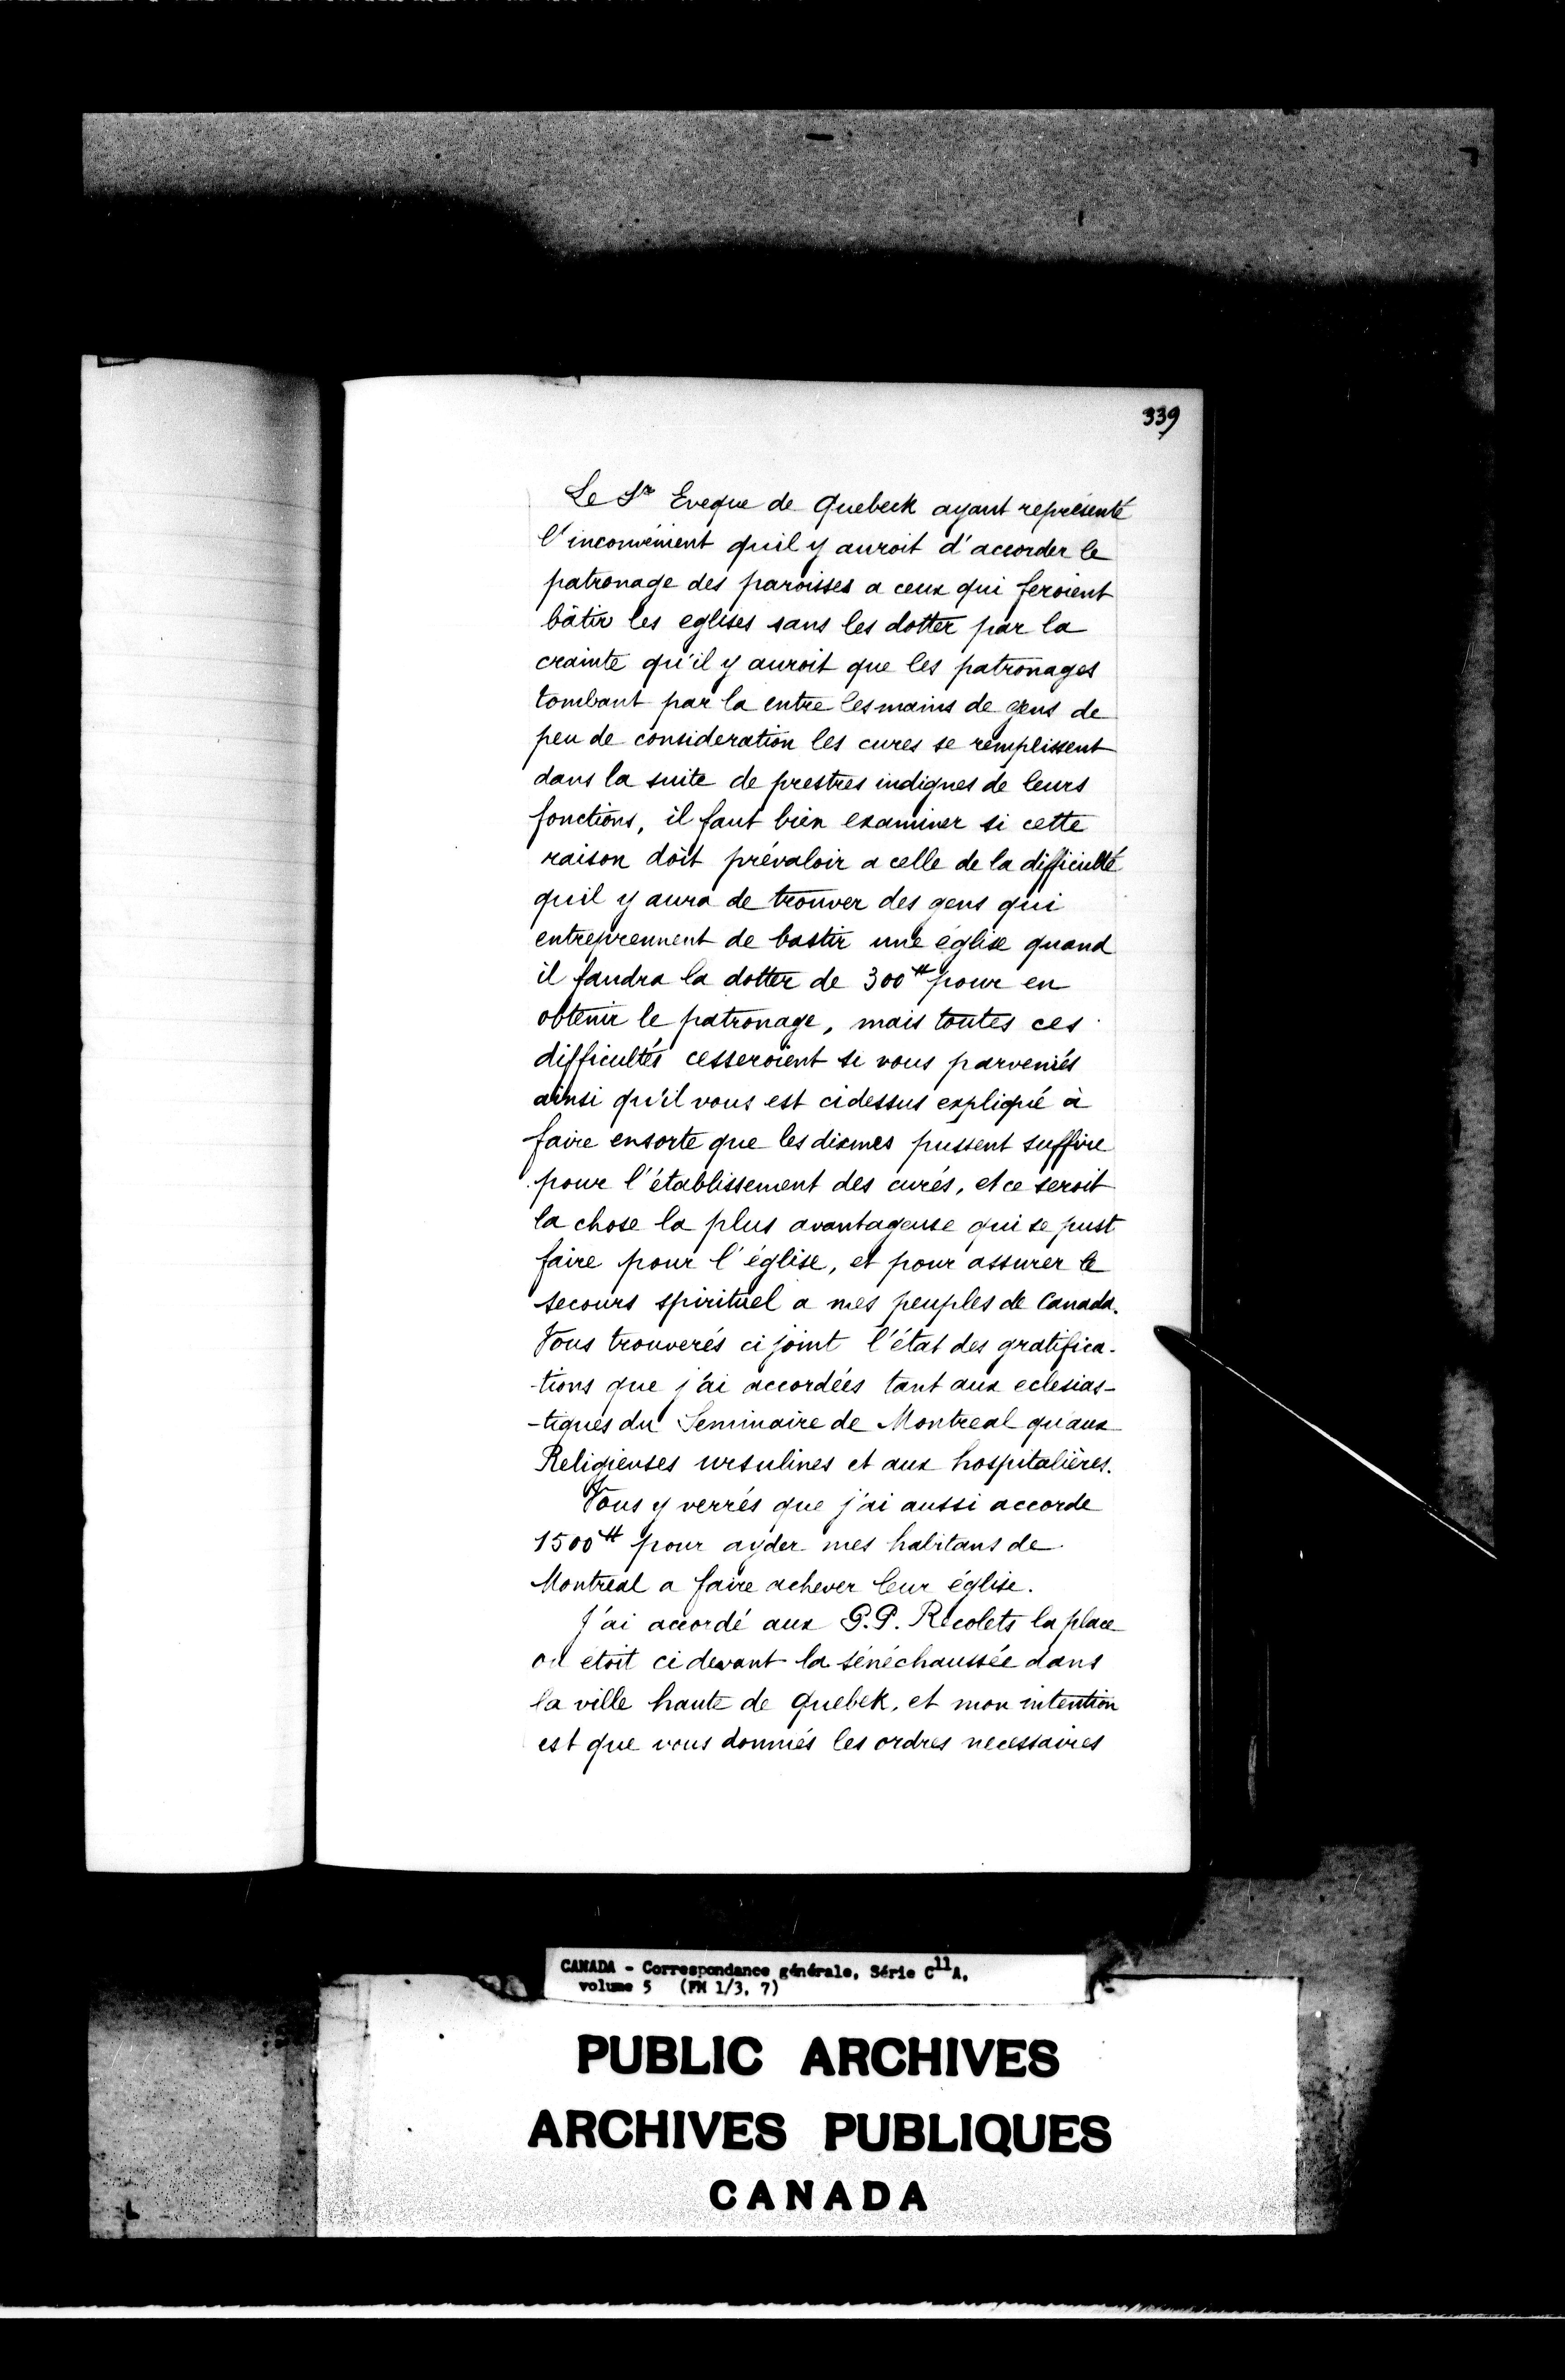 339
Le Sr Eveque de Quebeck ayant représenté
l'inconvénient quil y auroit d'accorder le
patronage des paroisses a ceux qui feroient
bâtir les eglises sans les dotter par la
crainte qu'il y auroit que les patronages
tombant par la entre les mains de gens de
peu de consideration les cures se remplissent
dans la suite de prestres indignes de leurs
fonctions, il faut bien examiner si cette
raison doit prévaloir a celle de la difficulté
quil y aura de trouver des gens qui
entreprennent de bastir une église quand
il faudra la dotter de 300tt pour en
obtenir le patronage, mais toutes ces
difficultés cesseroient si vous parveniés
ainsi qu'il vous est cidessus expliqué à
faire ensorte que les dixmes pussent suffire
pour l'établissement des curés, et ce seroit
la chose la plus avantageuse qui se pust
faire pour l'église, et pour assurer le
secours spirituel a mes peuples de Canada.
Vous trouverés ci joint l'état des gratifica-
-tions que j'ai accordées tant aux eclesias-
-tiques du Seminaire de Montreal qu'aux
Religieuses ursulines et aux hospitalières.
Vous y verrés que j'ai aussi accorde
1500tt pour ayder mes habitans de
Montreal a faire achever leur église.
J'ai accordé aux P.P. Recolets la place
ou etoit ci devant la sénéchaussée dans
la ville haute de Quebek, et mon intention
est que vous donniés les ordres necessaires
CANADA - Correspondance générale, Série C11A,
volume 5 (FM 1/3, 7)
PUBLIC ARCHIVES
ARCHIVES PUBLIQUES
CANADA